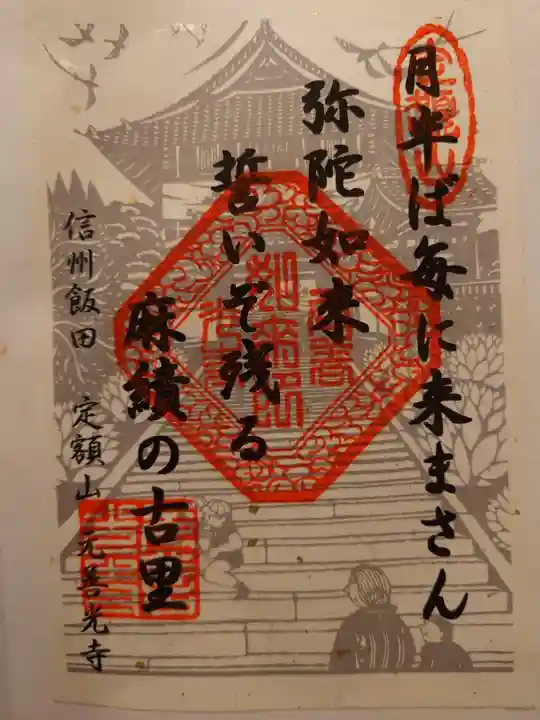 月半ば毎に来まさん
弥陀如来
誓いぞ残る
麻績の古里
信州飯田 定額山 元善光寺